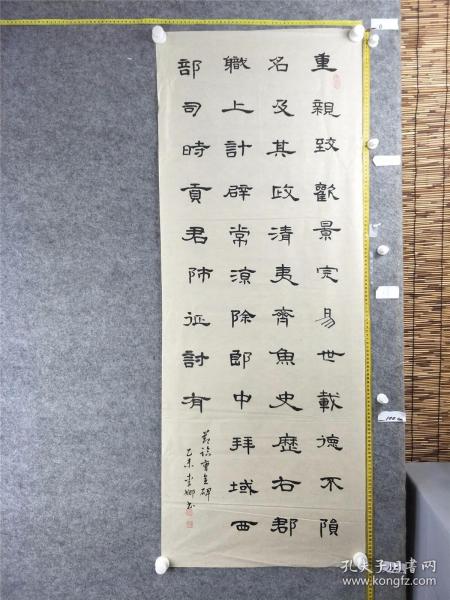 重親致歡景完易世載德不隕
名及其政清夷齊魚史歷右郡
職上計辟常涼除郎中拜域西
部司時貢君師征討有
節臨曹全碑
乙未李娜书
孔夫子旧书网